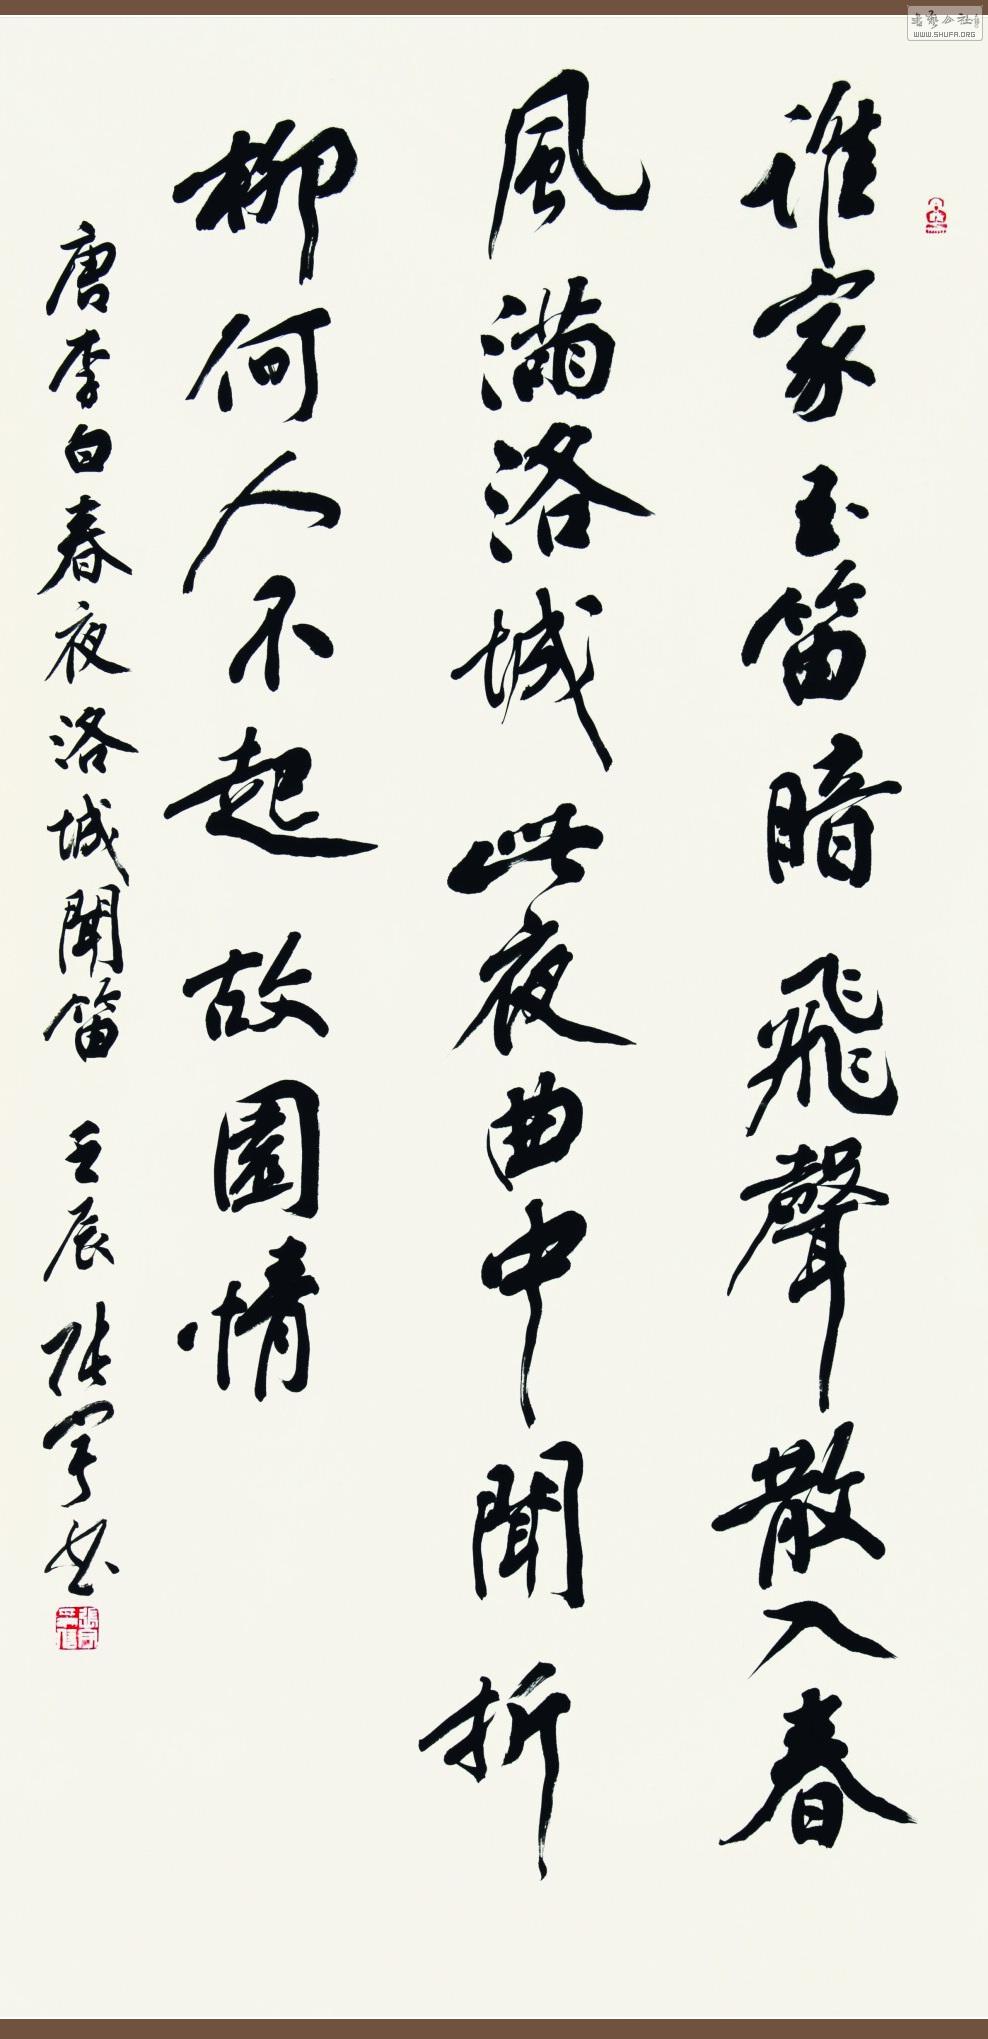 谁家玉笛暗飛聲散入春
風滿洛城此夜曲中聞折
柳何人不起故園情
唐李白春夜洛城聞笛 壬辰 张宇书
WWW.SHUFA.ORG